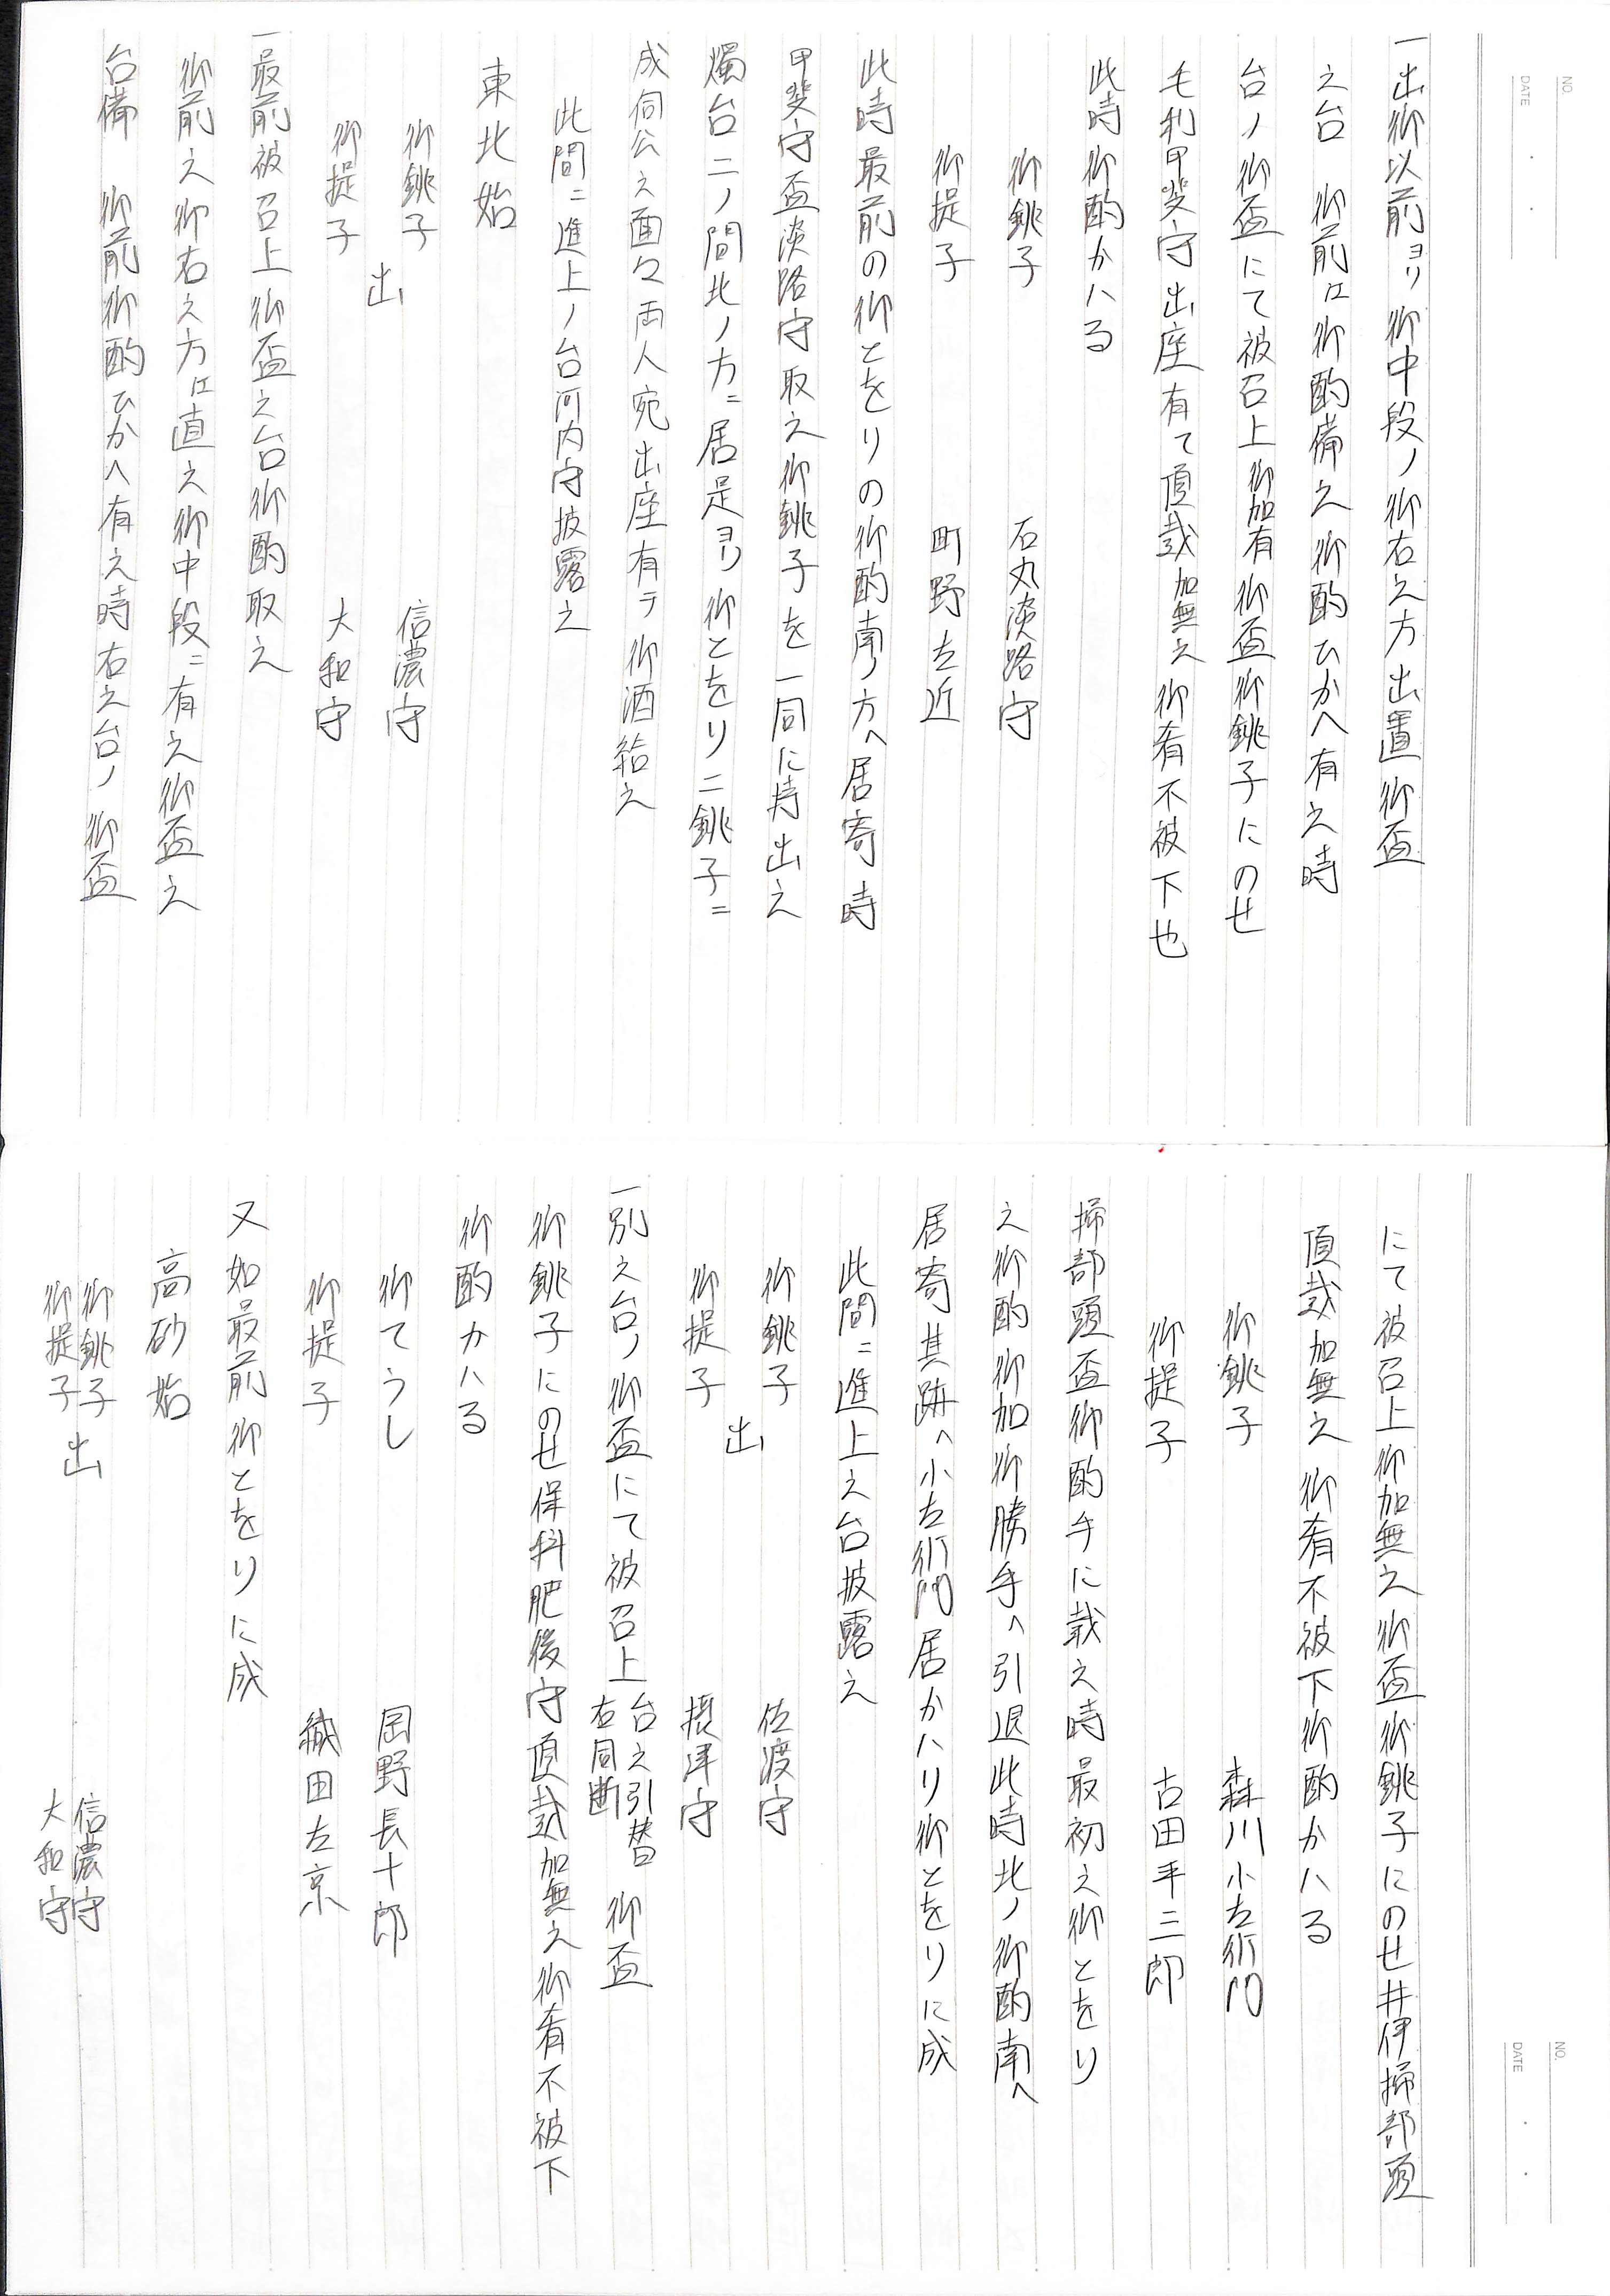 一出御以前ヨリ御中段ノ御右之方出置御盃
之台　御前江御酌備之御酌ひかへ有之時
台ノ御盃にて被召上御加有御盃御銚子にのせ
毛利甲斐守出座有て頂戴加無之御肴不被下也
此時御酌かハる
御銚子　石丸淡路守
御提子　町野左近
此時最前の御とをりの御酌南ノ方へ居寄時
甲斐守盃淡路守取之御銚子を一同に持出之
燭台二ノ間北ノ方ニ居足ヨリ御とをり二銚子ニ
成伺公之面々両人宛出座有テ御酒給之
此間ニ進上ノ台河内守披露之
東北始
御銚子　信濃守
出
御提子　大和守
一最前被召上御盃之台御酌取之
御前之御右之方江直之御中段ニ有之御盃之
台備　御前御酌ひかへ有之時右之台ノ御盃
にて被召上御加無之御盃御銚子にのせ井伊掃部頭
頂戴加無之御肴不被下御酌かハる
御銚子　森川小左衛門
御提子　古田平三郎
掃部頭盃御酌手に載之時最初之御とをり
之御酌御加御勝手へ引退此時北ノ御酌南へ
居寄其跡へ小左衛門居かハり御とをりに成
此間ニ進上之台披露之
御銚子　佐渡守
出
御提子　摂津守
一別之台ノ御盃にて被召上台之引替右同断　御盃
御銚子にのせ保科肥後守頂戴加無之御肴不被下
御酌カハる
御てうし　岡野長十郎
御提子　織田左京
又如最前御とをりに成
高砂始
御銚子　信濃守
御提子　出　大和守
NO.
DATE
NO.
DATE